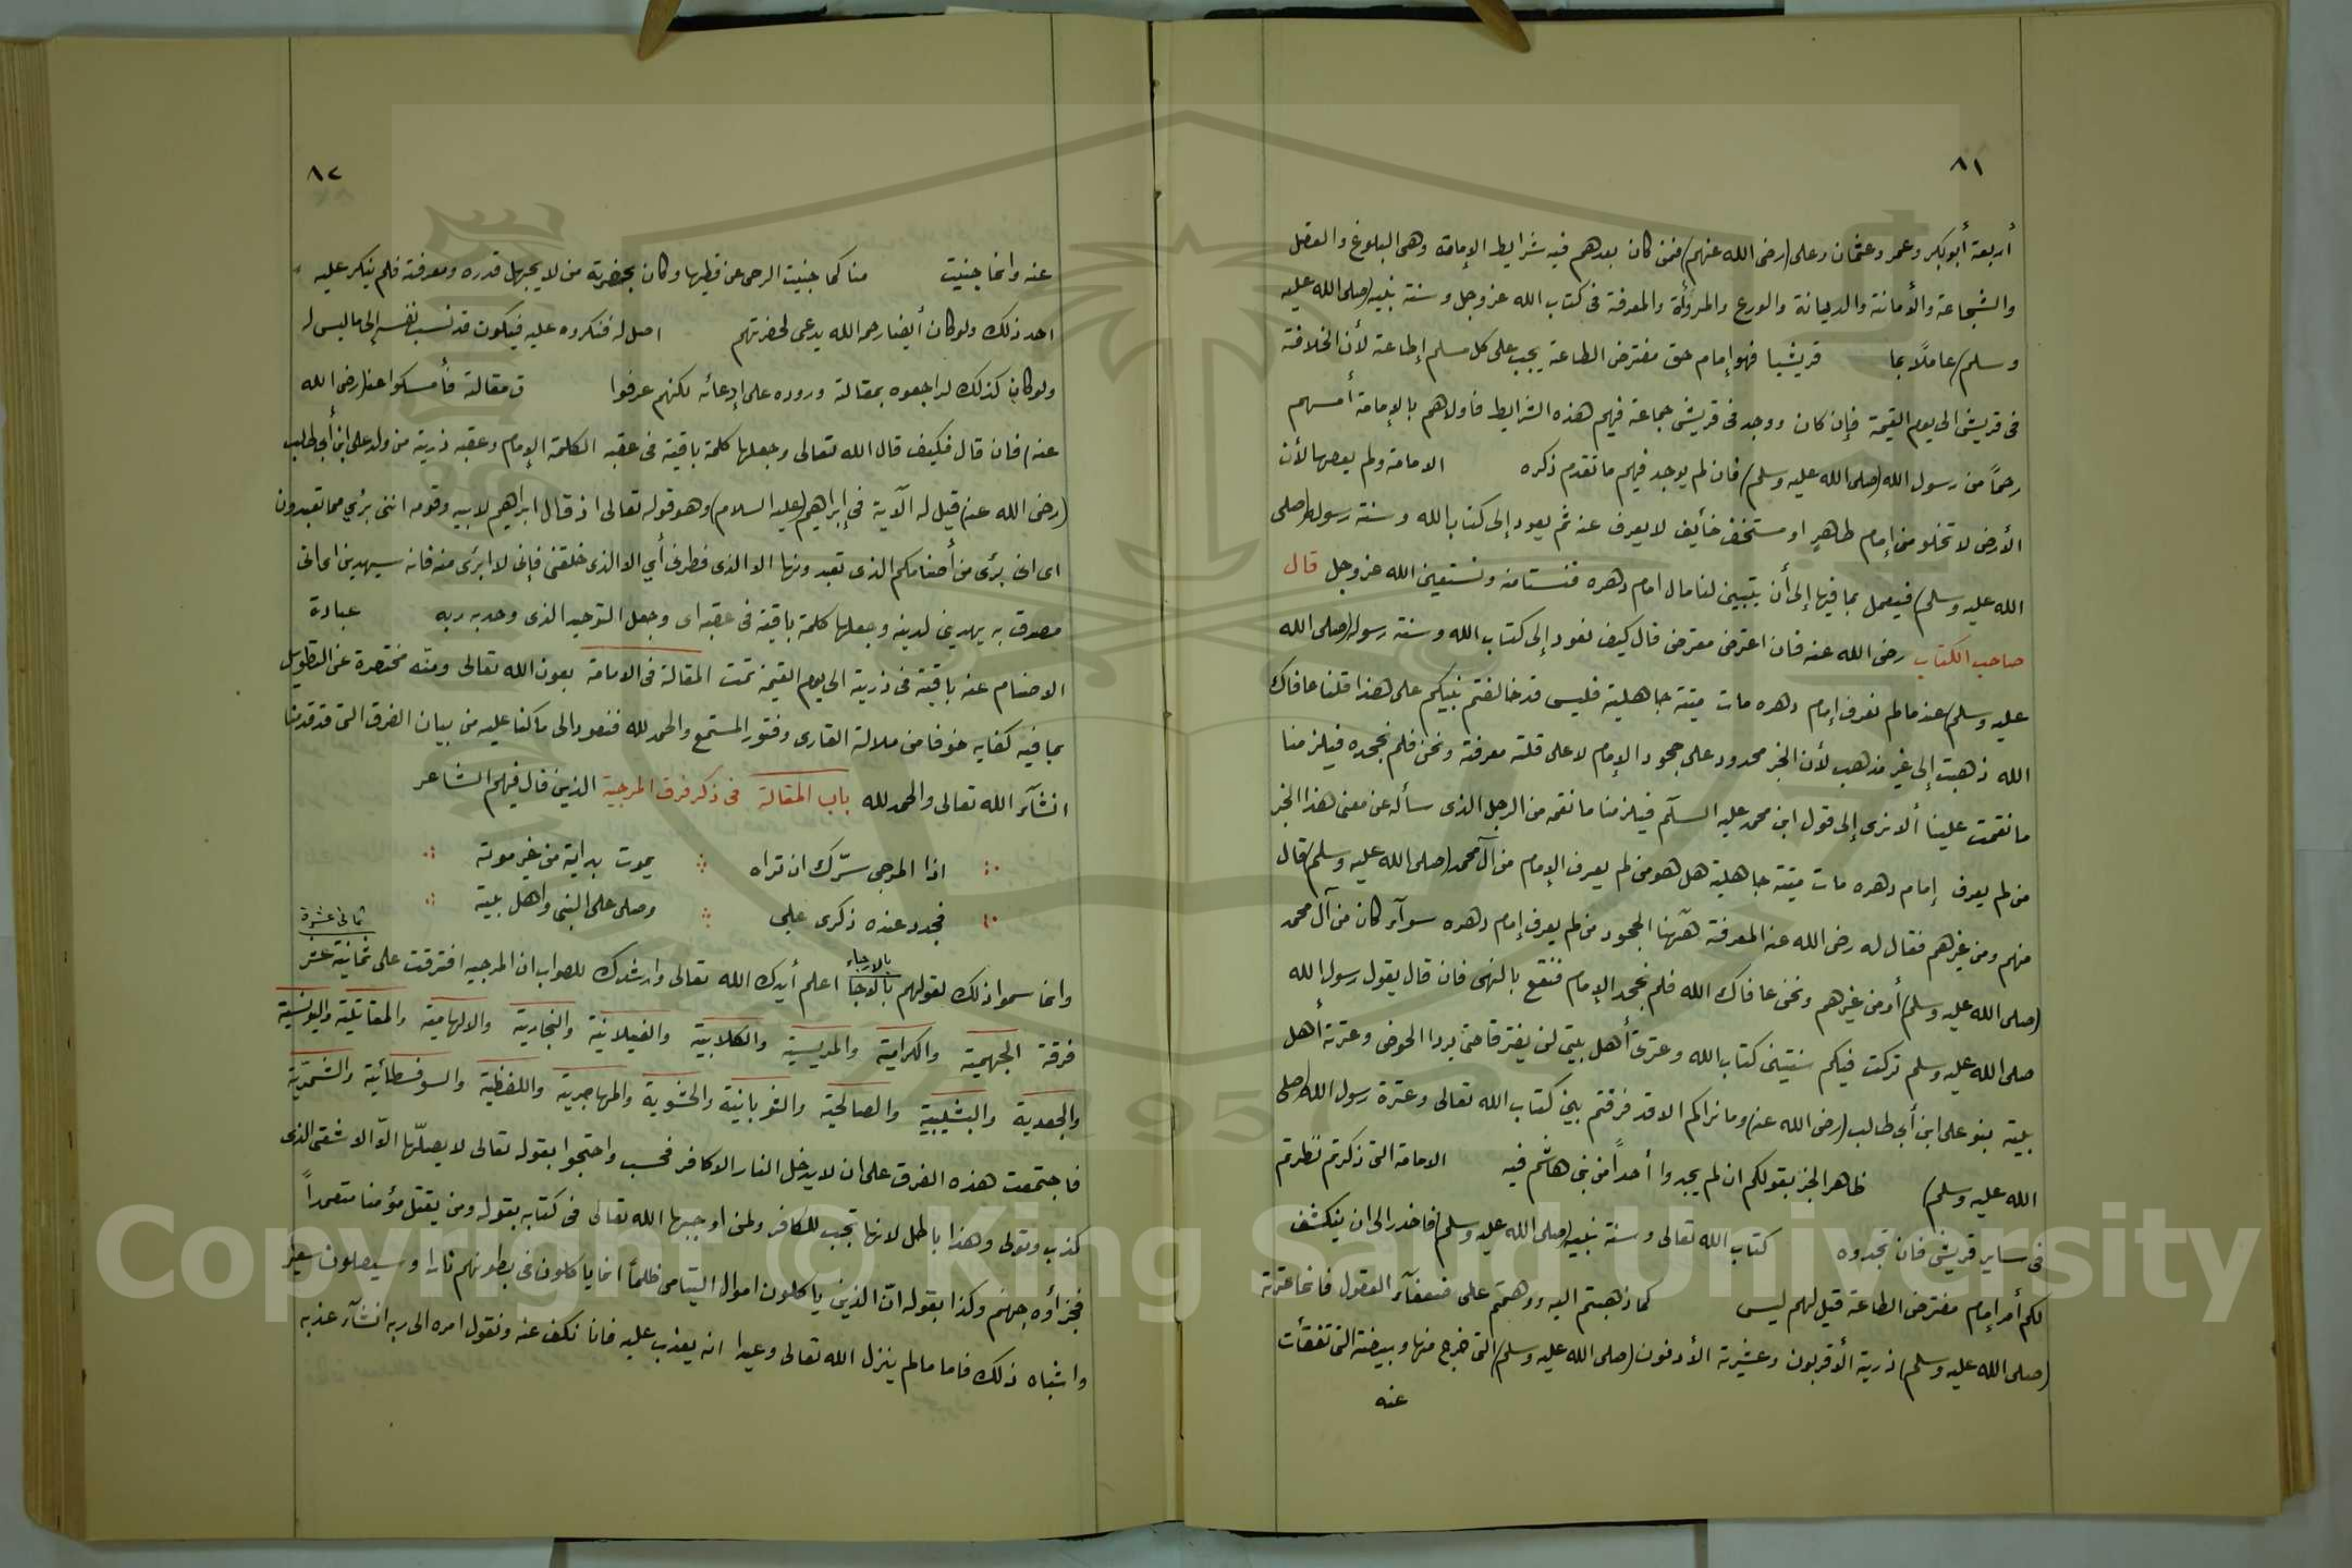 ٨١
أربعة أبوبكر وعمر وعثمان وعلى (رضى الله عنهم) فمن كان بعدهم فيه شرايط الإمامة وهى البلوغ والعقل
والشجاعة والأمانة والديانة والورع والمروأة والمعرفة فى كتاب الله عز وجل وسنة نبيه (صلى الله عليه
وسلم) عاملاً بما قريشيا فهو إمام حق مفترض الطاعة يجب على كل مسلم إطاعة لأن الخلافة
فى قريش الى يوم القيمة فإن كان ووجد فى قريش جماعة فيهم هذه الشرايط فأولاهم بالإمامة أمسهم
رحمًا من رسول الله (صلى الله عليه وسلم) فان لم يوجد فيهم ما تقدم ذكره الامامة ولم يعصها لأن
الأرض لا تخلو من إمام ظاهرٍ او مستخف خأيف لا يعرف عنه ثم يعود إلى كتاب الله وسنة رسوله (صلى
الله عليه وسلم) فيعمل بما فيها إلى أن يتبين لنا مال امام دهره فنستامنه ونستعين الله عز وجل قال
صاحب الكتاب رضى الله عنه فان اعترض معترض قال كيف نعود إلى كتاب الله وسنة رسوله (صلى الله
عليه وسلم) عند مالم نعرف إمام دهره مات ميتة جاهلية فليس قد خالفتم نبيكم على هذا قلنا عافاك
الله ذهبت إلى غير مذهب لأن الخبر محدود على جحود الإمام لا على قلة معرفة ونحن فلم نجحده فيلزمنا
ما نقمت علينا ألا ترى إلى قول ابن محمد عليه السلم فيلزمنا ما نقمه من الرجل الذى سأله عن معنى هذا الخبر
من لم يعرف إمام دهره مات ميتة جاهلية هل هو من لم يعرف الإمام من آل محمد (صلى الله عليه وسلم) قال
منهم ومن غيرهم فقال له رضى الله عنه المعرفة هٓهنا الجحود من لم يعرف إمام دهره سوآء كان من آل محمد
(صلى الله عليه وسلم) أو من غيرهم ونحن عافاك الله فلم نجحد الإمام فنقع بالنهى فان قال يقول رسول الله
صلى الله عليه وسلم تركت فيكم سنتين كتاب الله وعترى أهل بيتى لن يفترقا حتى يردا الحوض وعترته أهل
بيته بنو على ابن أبى طالب (رضى الله عنه) وما نراكم الا قد فرقتم بين كتاب الله تعالى وعترة رسول الله (صلى
الله عليه وسلم) ظاهر الخبر بقولكم ان لم يجدوا أحداً من بنى هاشم فيه الامامة التى ذكرتم نظرتم
فى ساير قريش فان تجدوه كتاب الله تعالى وسنة نبيه (صلى الله عليه وسلم) فاخدر الى ان ينكشف
لكم أمر إمام مفترض الطاعة قيل لهم ليس كما ذهبتم اليه ووهمتم على ضعفآء العقول فانما عترة
(صلى الله عليه وسلم) ذرية الأقربون وعشيرته الأدنون (صلى الله عليه وسلم) التى خرج منها وبيضة التى تفقأت
عنه
٨٢
عنه وانما جنيت منا كما جنيت الرحى عن قطبها وكان بحضرته من لا يجهل قدره ومعرفة فلم ينكر عليه
احد ذلك ولو كان أيضا رحمه الله يدعى لحضرتهم اصل له فنكروه عليه فيكون قد نسب نفسه إلى ما ليس له
ولو كان كذلك لراجعوه بمقالة وروده على إدعائه لكنهم عرفوا ق مقالة فأمسكوا عنه (رضى الله
عنه) فان قال فكيف قال الله تعالى وجعلها كلمة باقية فى عقبه الكلمة الإمام وعقبه ذرية من ولد على ابن أبى طالب
(رضى الله عنه) قيل له الآية فى إبراهيم (عليه السلام) وهو قوله تعالى اذ قال ابراهيم لابيه وقومه اننى برئ مما تعبدون
اى انى برئ من أصنامكم الذى تعبدونها الا الذى فطرنى أي الا الذى خلقنى فإنى لا ابرئ منه فانه سيهدين اى انى
مصدق به يهدينى لدينه وجعلها كلمة باقية فى عقبه اى وجعل التوحيد الذى وحد به ربه عبادة
الاصنام عنه باقية فى ذرية الى يوم القيمة تمت المقالة فى الامامة بعون الله تعالى ومنّه مختصرة عن التطويل
بما فيه كفايه خوفا من ملالة القارى وفتور المستمع والحمد لله فنعود الى ما كنا عليه من بيان الفرق التى قد قدمنا
انشآء الله تعالى والحمد لله باب المقالة فى ذكر فرق المرجية الذين قال فيهم الشاعر
اذا المرجى سرّك ان تراه يموت بدايةً من غير موته
فجدد عنده ذكرى على وصلى على النبى واهل بيته
وانما سموا ذلك لقولهم بالارجاء بالوجا اعلم أيدك الله تعالى وارشدك للصواب ان المرجيه افترقت على ثمانية عشر ثمانى عشرة
فرقة الجهمية والكرامية والمريسية والكلابية والغيلانية والنجارية والالهامية والمقاتلية واليونسية
والجعدية والبشيبية والصالحية والثوبانية والحشوية والمهاجرية واللفظية والسوفسطائية والشمّرية
فاجتمعت هذه الفرق على ان لا يدخل النار الا كافر فحسب واحتجوا بقوله تعالى لا يصلّها الّا الاشقى الذى
كذب وتولى وهذا باطل لانها تجب للكافر ولمن اوجبها الله تعالى فى كتابه بقوله ومن يقتل مؤمنا متعمداً
فجزأؤه جهنم وكذا بقوله انّ الذين ياكلون اموال اليتامى ظلماً انما ياكلون فى بطونهم نارا وسيصلون سعيرا
واشباه ذلك فاما مالم ينزل الله تعالى وعيدا انه يعذب عليه فانا نكف عنه ونقول امره الى ربه انشآء عذبه
Copyright © King Saud University
1957